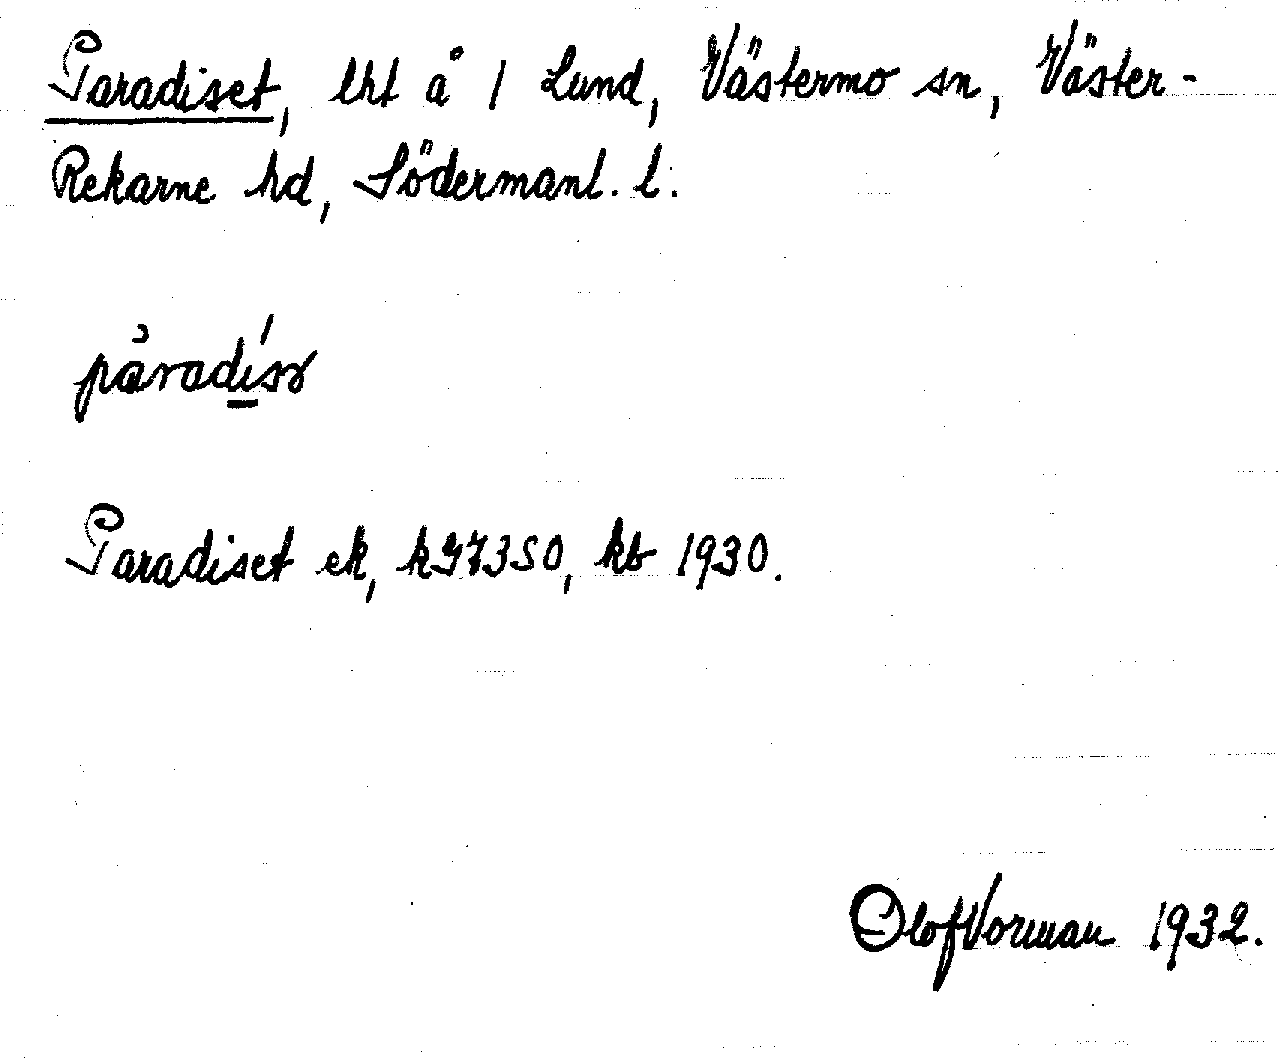 Paradiset, lht å 1 Lund, Västermo sn, Väster-
Rekarne hd, Södermanl. l.
Paradiset ek, kg7350, kb 1930.
Olof Vorman 1932.